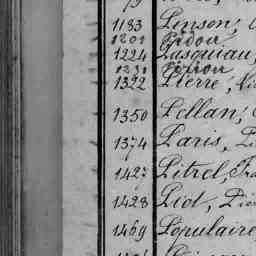 1183 Pinson,
1201 Pidou
1224 Pasquiau,
1231 Poirou
1322 Pierre, Vi
1350 Pellan,
1374 Paris, Pi
1427 Pitrel, Fra
1428 Piot, Pier
1469 Populaire